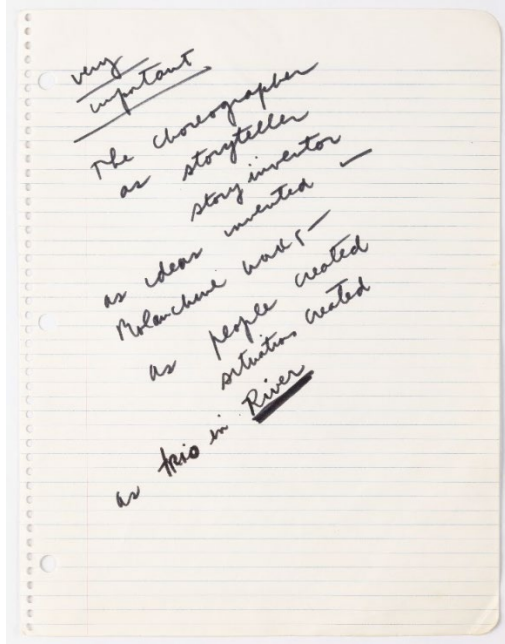 very
important
The choreographer
as storyteller
story inventor
as ideas invented —
Balanchine works —
as people created
situations created
as trio in River